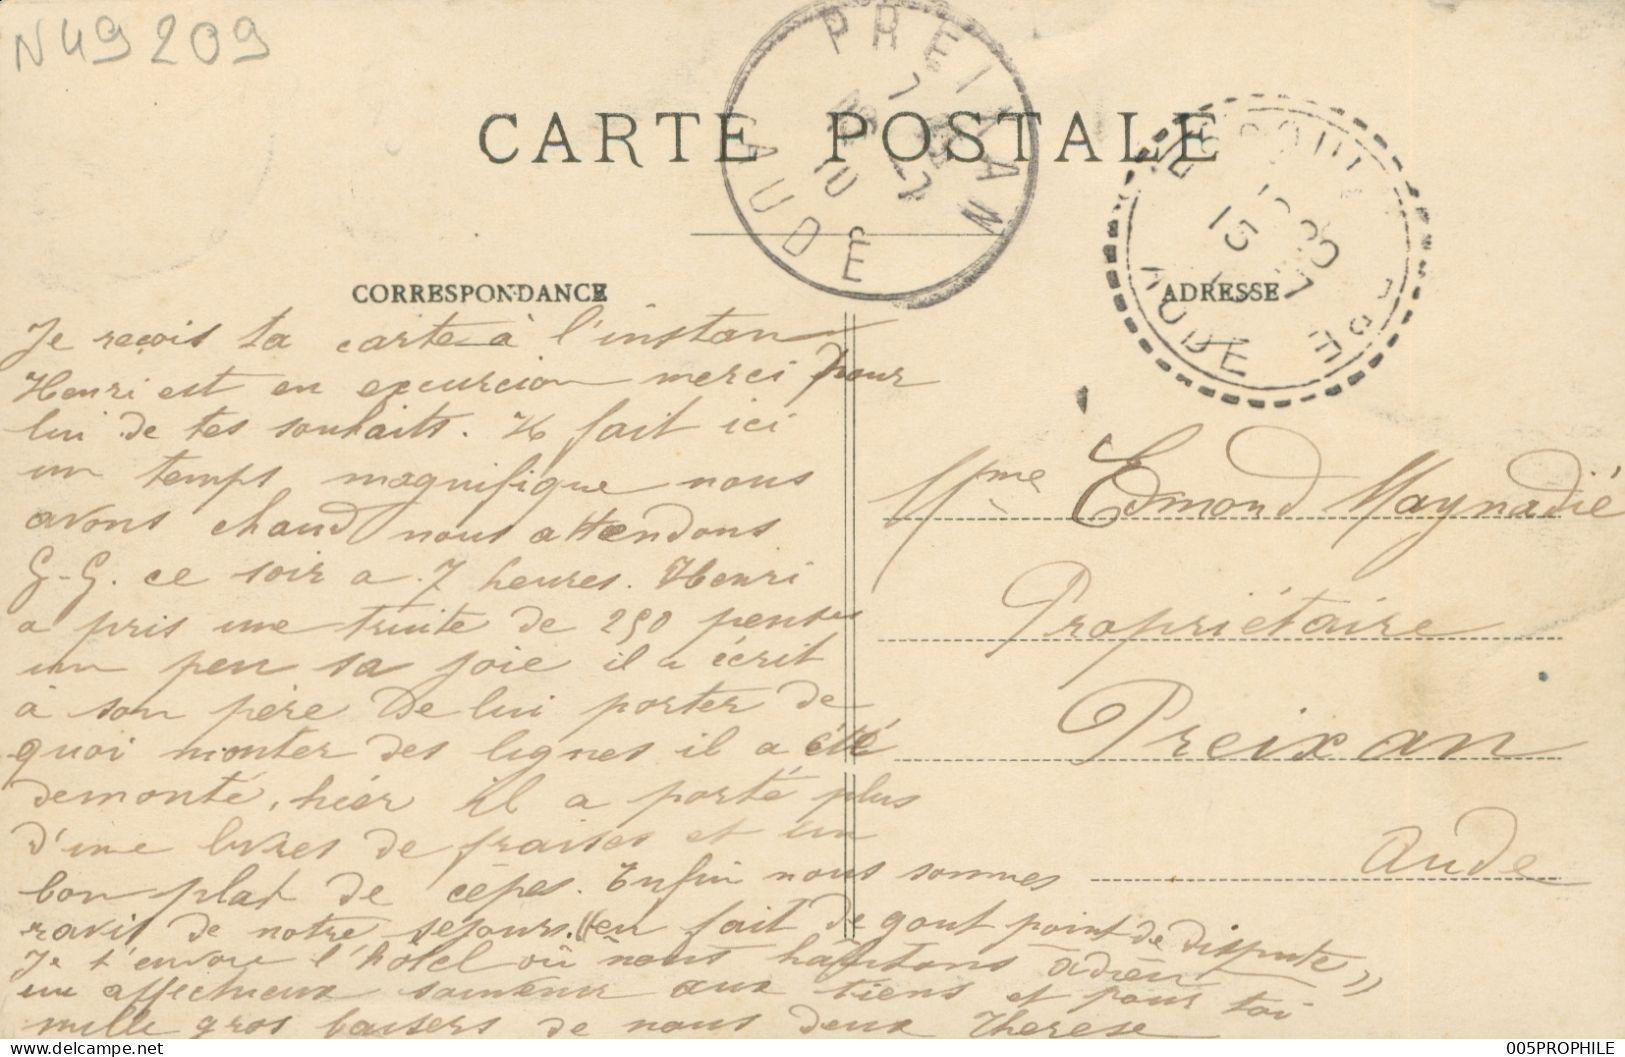 N49209
CARTE POSTALE
PREIXAN
AUDE
15
AUDE
CORRESPONDANCE
ADRESSE
Je reçois ta carte à l'instan
Henri est en excurcion merci pour
lui de tes souhaits. Il fait ici
un temps magnifique nous
avons chaud nous attendons
G-G. ce soir a 7 heures. Henri
a pris une truite de 250 penses
un peu sa joie il a écrit
à son père De lui porter de
quoi monter des lignes il a été
demonté, hier il a porté plus
d'une livres de fraises et un
bon plat de cèpes. Enfin nous sommes
ravis de notre sejours. (( en fait de gout point de dispute ))
Je t'envoie l'hotel où nous habitons adieu
un affectueux souvenir aux tiens et pour toi
mille gros baisers de nous deux Therese
Mme Edmond Maynadié
Propriétaire
Preixan
Aude
005PROPHILE